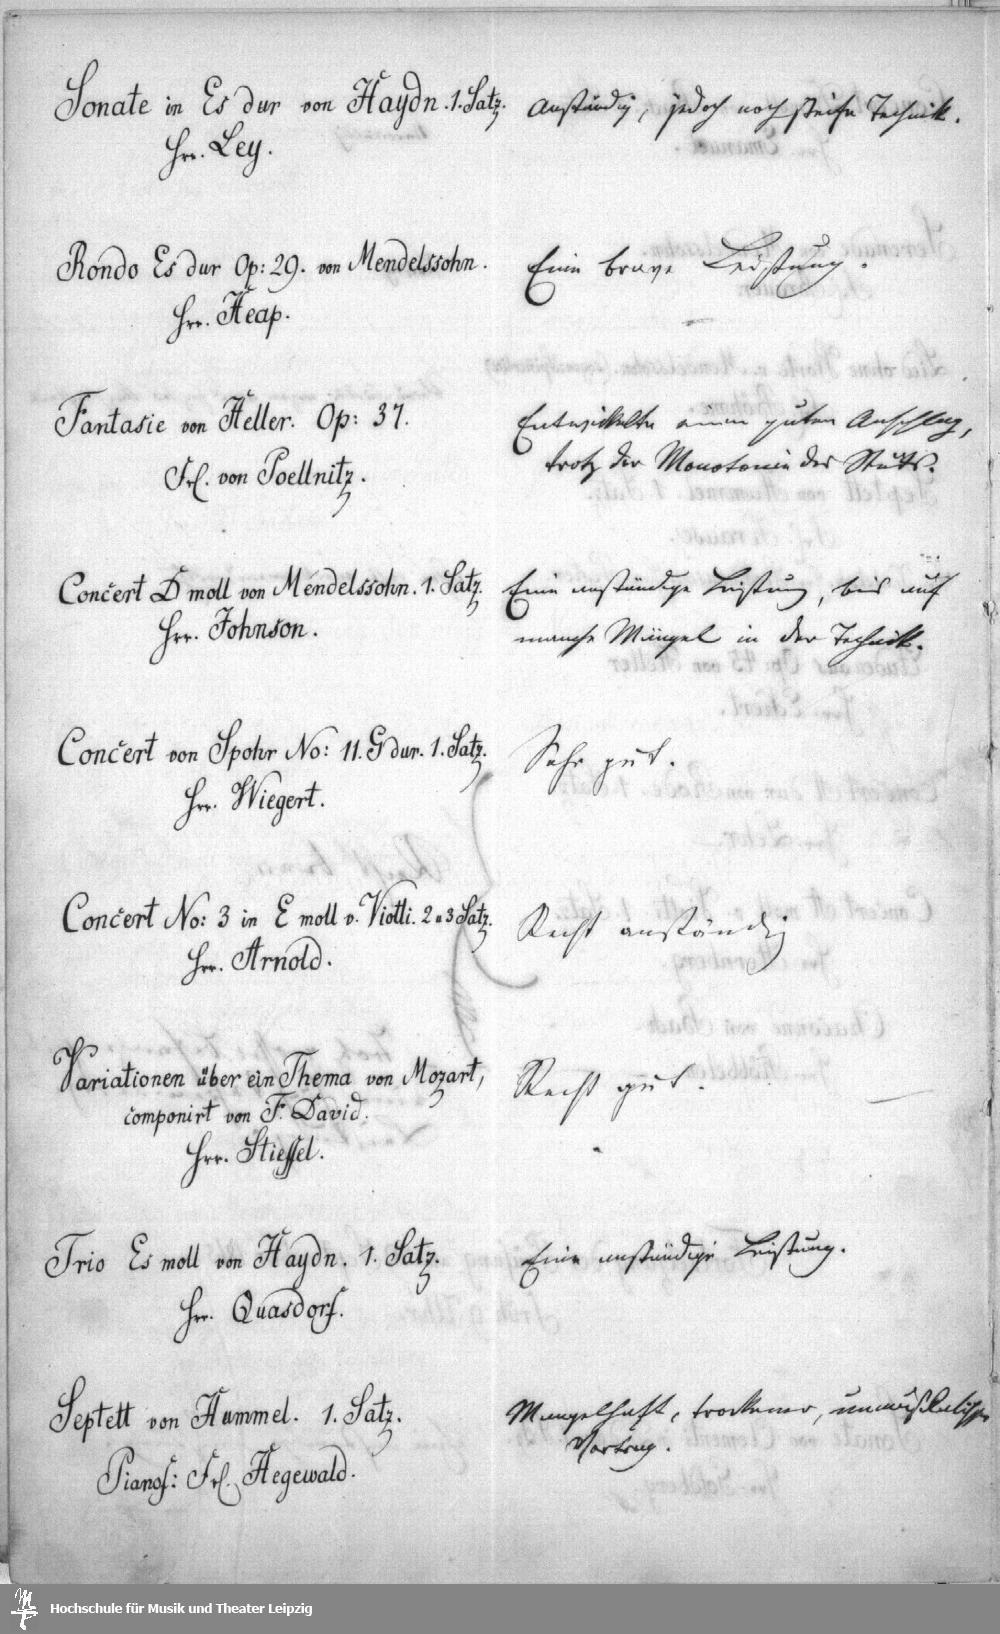 Sonate in Es dur von Haydn. 1. Satz.
Anständig, jedoch noch steife Technik.
Hrr. Ley.
Rondo Es dur Op: 29. von Mendelssohn.
Eine brave Leistung.
Hrr. Heap.
Fantasie von Heller. Op: 37.
Entwickelte einen guten Anschlag,
Frl. von Poellnitz.
trotz der Monotonie des Stücks.
Concert D moll von Mendelssohn. 1. Satz.
Eine anständige Leistung, bis auf
Hrr. Johnson.
manche Mängel in der Technik.
Concert von Spohr No: 11. G dur. 1. Satz.
Sehr gut.
Hrr. Wiegert.
Concert No: 3 in E moll v. Viotti. 2 u 3 Satz.
Recht anständig
Hrr. Arnold.
Variationen über ein Thema von Mozart,
Recht gut.
componirt von F. David.
Hrr. Stieffel.
Trio Es moll von Haydn. 1. Satz.
Eine anständige Leistung.
Hrr. Quasdorf.
Septett von Hummel. 1. Satz.
Mangelhaft, trockener, unmusikalischer
Vortrag.
Pianof: Frl. Hegewald.
Hochschule für Musik und Theater Leipzig